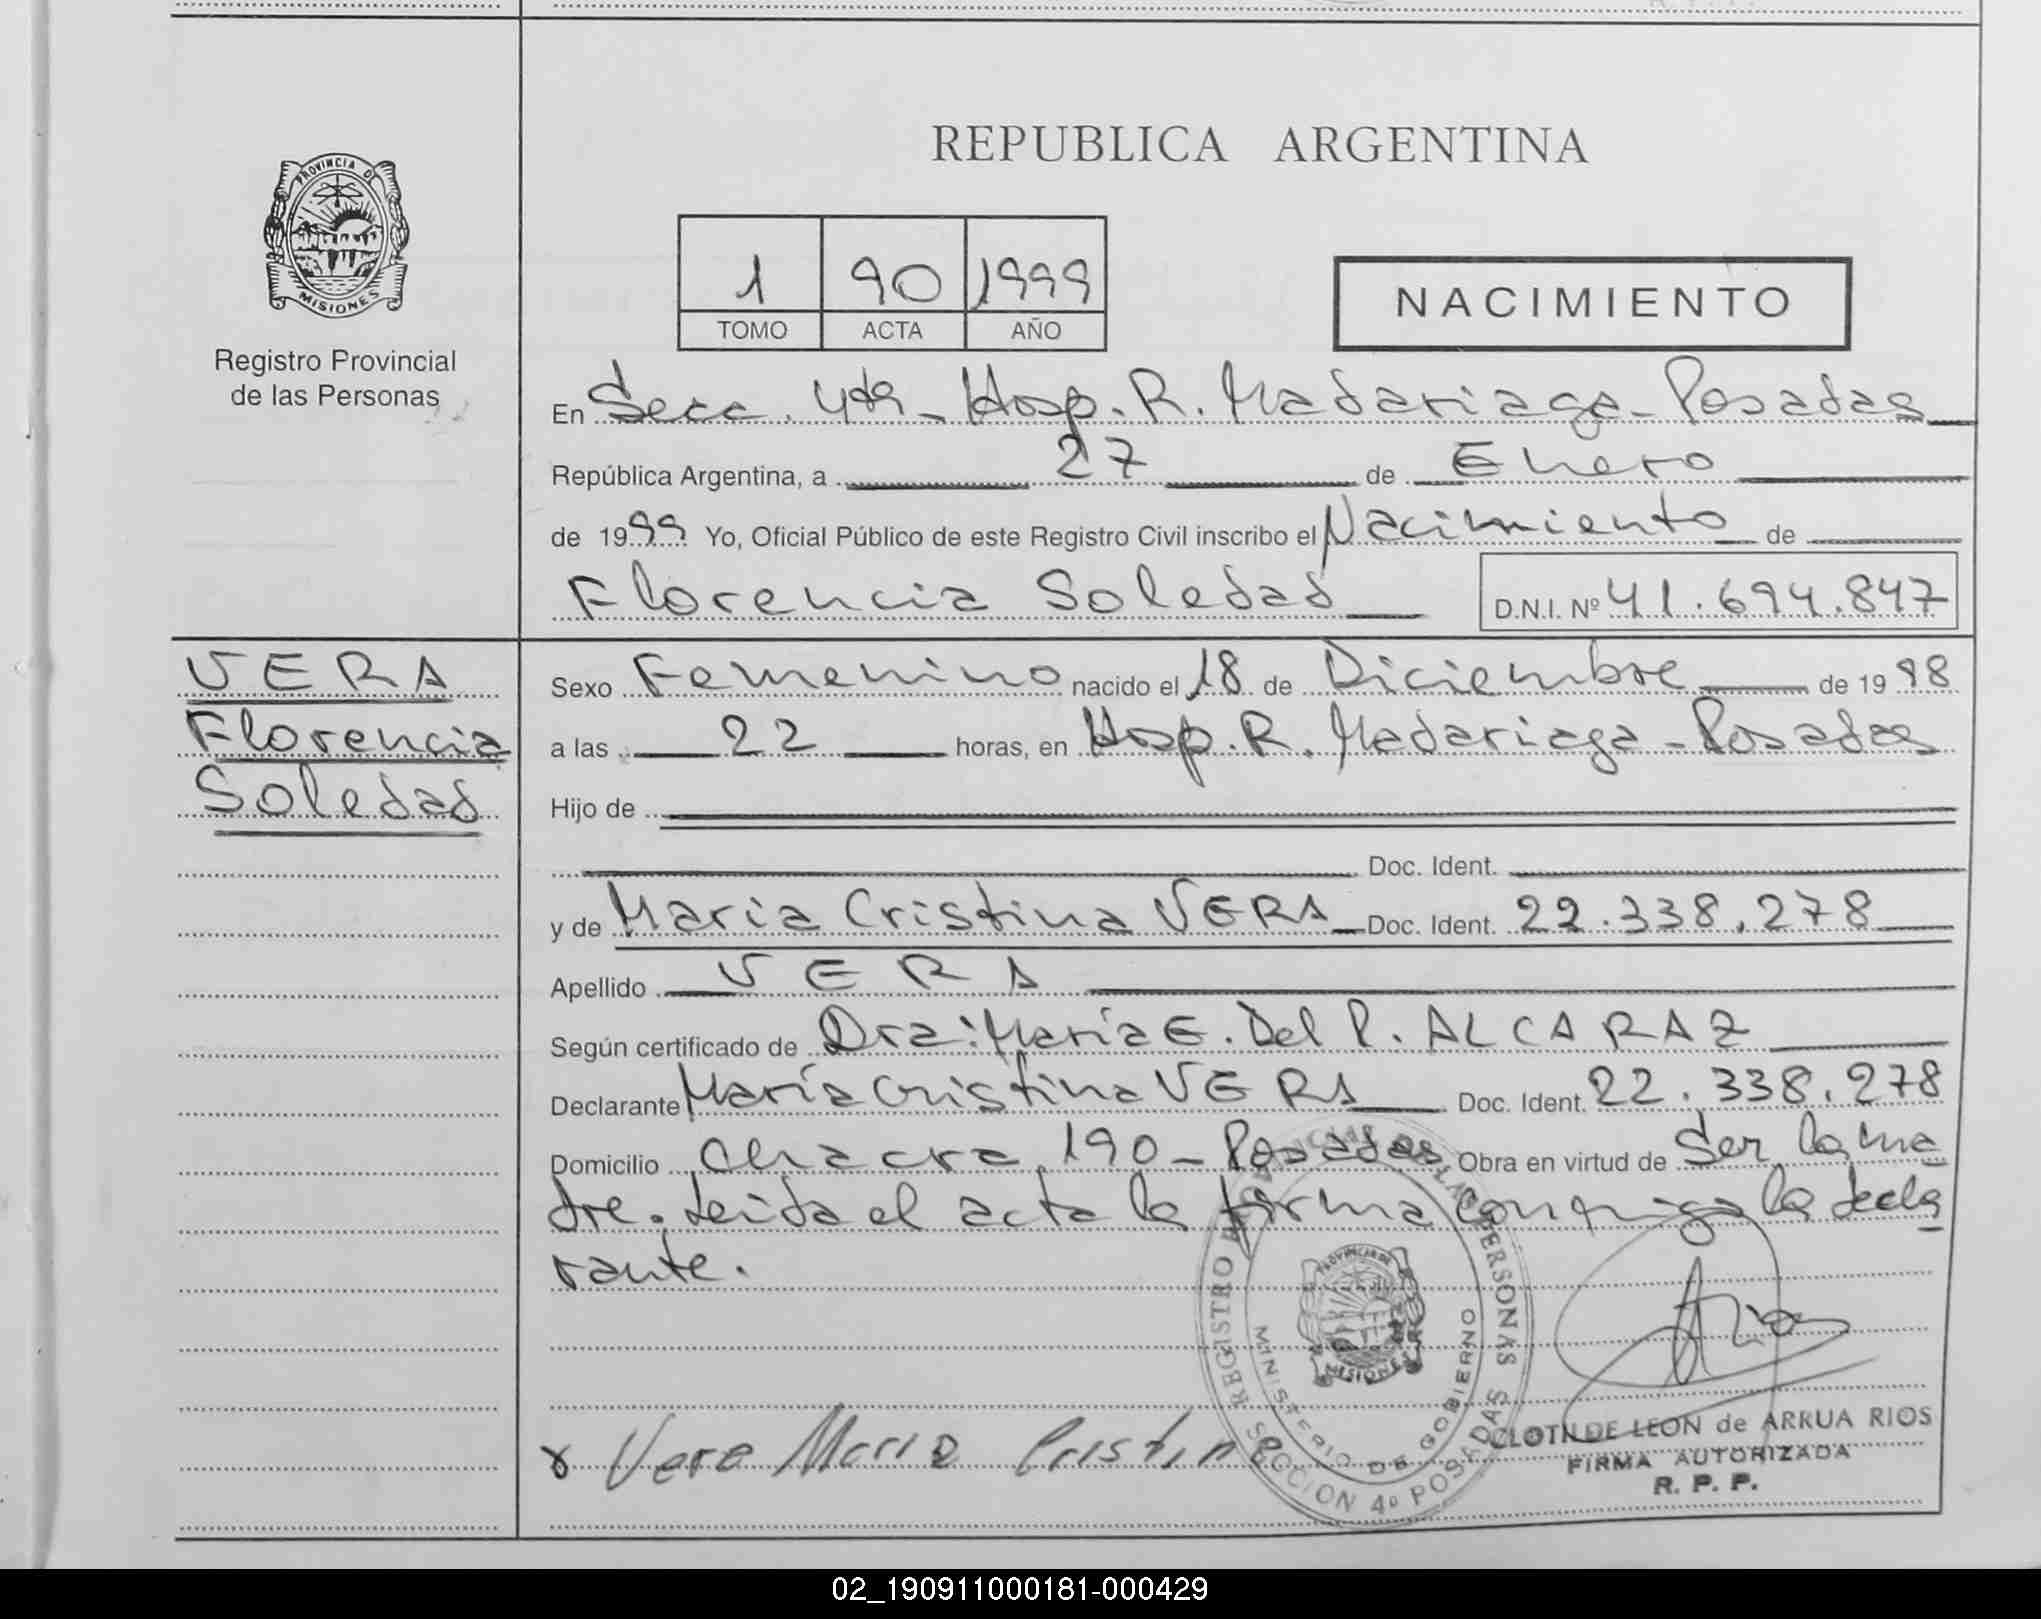 REPUBLICA ARGENTINA
PROVINCIA DE
MISIONES
Registro Provincial
de las Personas
1 90 1999
TOMO ACTA AÑO
NACIMIENTO
En Secc. 4ta - Hosp. R. Madariaga - Posadas
República Argentina, a 27 de Enero
de 1999 Yo, Oficial Público de este Registro Civil inscribo el Nacimiento de
Florencia Soledad D.N.I. Nº 41.694.847
VERA
Florencia
Soledad
Sexo Femenino nacido el 18 de Diciembre de 1998
a las 22 horas, en Hosp. R. Madariaga - Posadas
Hijo de
Doc. Ident.
y de Maria Cristina VERA Doc. Ident. 22.338.278
Apellido VERA
Según certificado de Dra: María E. Del P. ALCARAZ
Declarante María Cristina VERA Doc. Ident. 22.338.278
Domicilio Chacra 190 - Posadas Obra en virtud de Ser la ma
dre. Leida el acta la firma conmigo la decla
rante.
REGISTRO PROVINCIAL DE LAS PERSONAS
MINISTERIO DE GOBIERNO
SECCION 4º POSADAS
PROVINCIA DE
MISIONES
x Vera Maria Cristina
CLOTILDE LEON de ARRUA RIOS
FIRMA AUTORIZADA
R. P. P.
02_190911000181-000429